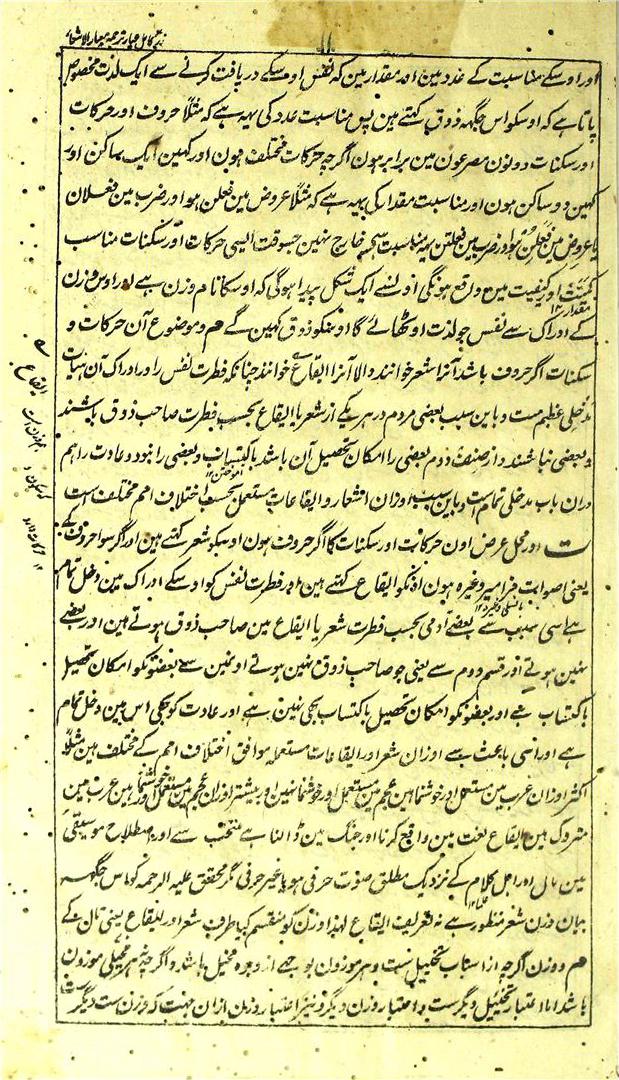 زر کامل عیار ترجمہ معیار الاشعار
۱۱
اور اوسکے مناسبت کے عدد مین اور مقدار مین کہ نفس اوسکے دریافت کرنے سے ایک لذت مخصوص
پاتا ہے کہ اوسکو اس جگہہ ذوق کہتے ہین پس مناسبت عدد کی یہہ ہے کہ مثلاً حروف اور حرکات
اور سکنات دونون مصرعون مین برابر ہون اگرچہ حرکات مختلف ہون اور کہین ایک ساکن اور
کہین دو ساکن ہون اور مناسبت مقدار کی یہہ ہے کہ مثلاً عروض مین فعلن ہو اور ضرب مین فعلان
یا عروض مین فعلن ہو اور ضرب مین فعلتن یہہ مناسبت سے خارج نہین جسوقت ایسی حرکات اور سکنات مناسب
کمیت اور کیفیت مین واقع ہونگی اونسے ایک شکل پیدا ہوگی کہ اوسکا نام وزن ہے اور اوس وزن
مقدار ۱۲
کے ادراک سے نفس جو لذت اوٹھائے گا اوسکو ذوق کہین گے هم و موضوع آن حرکات و
سکنات اگر حروف باشد آنرا شعر خوانند والا آنرا ایقاع خوانند چنانکہ فطرت نفس را در ادراک آن ہیأت
مدخلی عظیم ست و باین سبب بعضی مردم در ہر یکے از شعر یا ایقاع بحسب فطرت صاحب ذوق باشند
و بعضی نباشند و از صنف دوم بعضی را امکان تحصیل آن باشد باکتساب و بعضی را نبود و عادت را ہم
آموختن ۱۲
دران باب مدخلی تمام ست و باین سبب اوزان اشعار و ایقاعات مستعمل بحسب اختلاف امم مختلف است
ت اور محل عرض اون حرکات اور سکنات کا اگر حروف ہون اوسکو شعر کہتے ہین اور اگر سوا حروف کے
یعنی اصوات مزامیر وغیرہ ہون اونکو ایقاع کہتے ہین اور فطرت نفس کو اوسکے ادراک مین دخل تام
ہے اسی سبب سے بعضے آدمی بحسب فطرت شعر یا ایقاع مین صاحب ذوق ہوتے ہین اور بعضے
نہین ہوتے اور قسم دوم سے یعنی جو صاحب ذوق نہین ہوتے اونمین سے بعضونکو امکان تحصیل
باکتساب ہے اور بعضونکو امکان تحصیل باکتساب بھی نہین ہے اور عادت کو بھی اس مین دخل تمام
ہے اور اسی باعث سے اوزان شعر اور ایقاعات مستعملہ موافق اختلاف امم کے مختلف ہین مثلاً
اکثر اوزان عرب مین مستعمل اور خوشنما ہین عجم مین مستعمل اور خوشنما نہین اور بیشتر اوزان عجم مین مستعمل اور خوشنما ہین عرب مین
متروک ہین ایقاع لغت مین واقع کرنا اور جنگ مین ڈالنا ہے منتخب سے اور اصطلاح موسیقی
مین تال اور اہل کلام کے نزدیک مطلق صوت حرفی ہو یا غیر حرفی مگر محقق علیہ الرحمہ کو اس جگہہ
بیان وزن شعر منظور ہے نہ تعریف ایقاع لہذا وزن کو منقسم کیا طرف شعر اور ایقاع یعنی تال کے
هم و وزن اگرچہ از اسباب تخییل ست و ہر موزون بوجہے از وجوہ مخیل باشد و اگرچہ نہ ہر مخیلی موزون
باشد اما اعتبار تخییل دیگر ست و اعتبار وزن دیگر و نیز اعتبار وزن ازان جہت کہ وزن ست دیگر ست
ایقاع